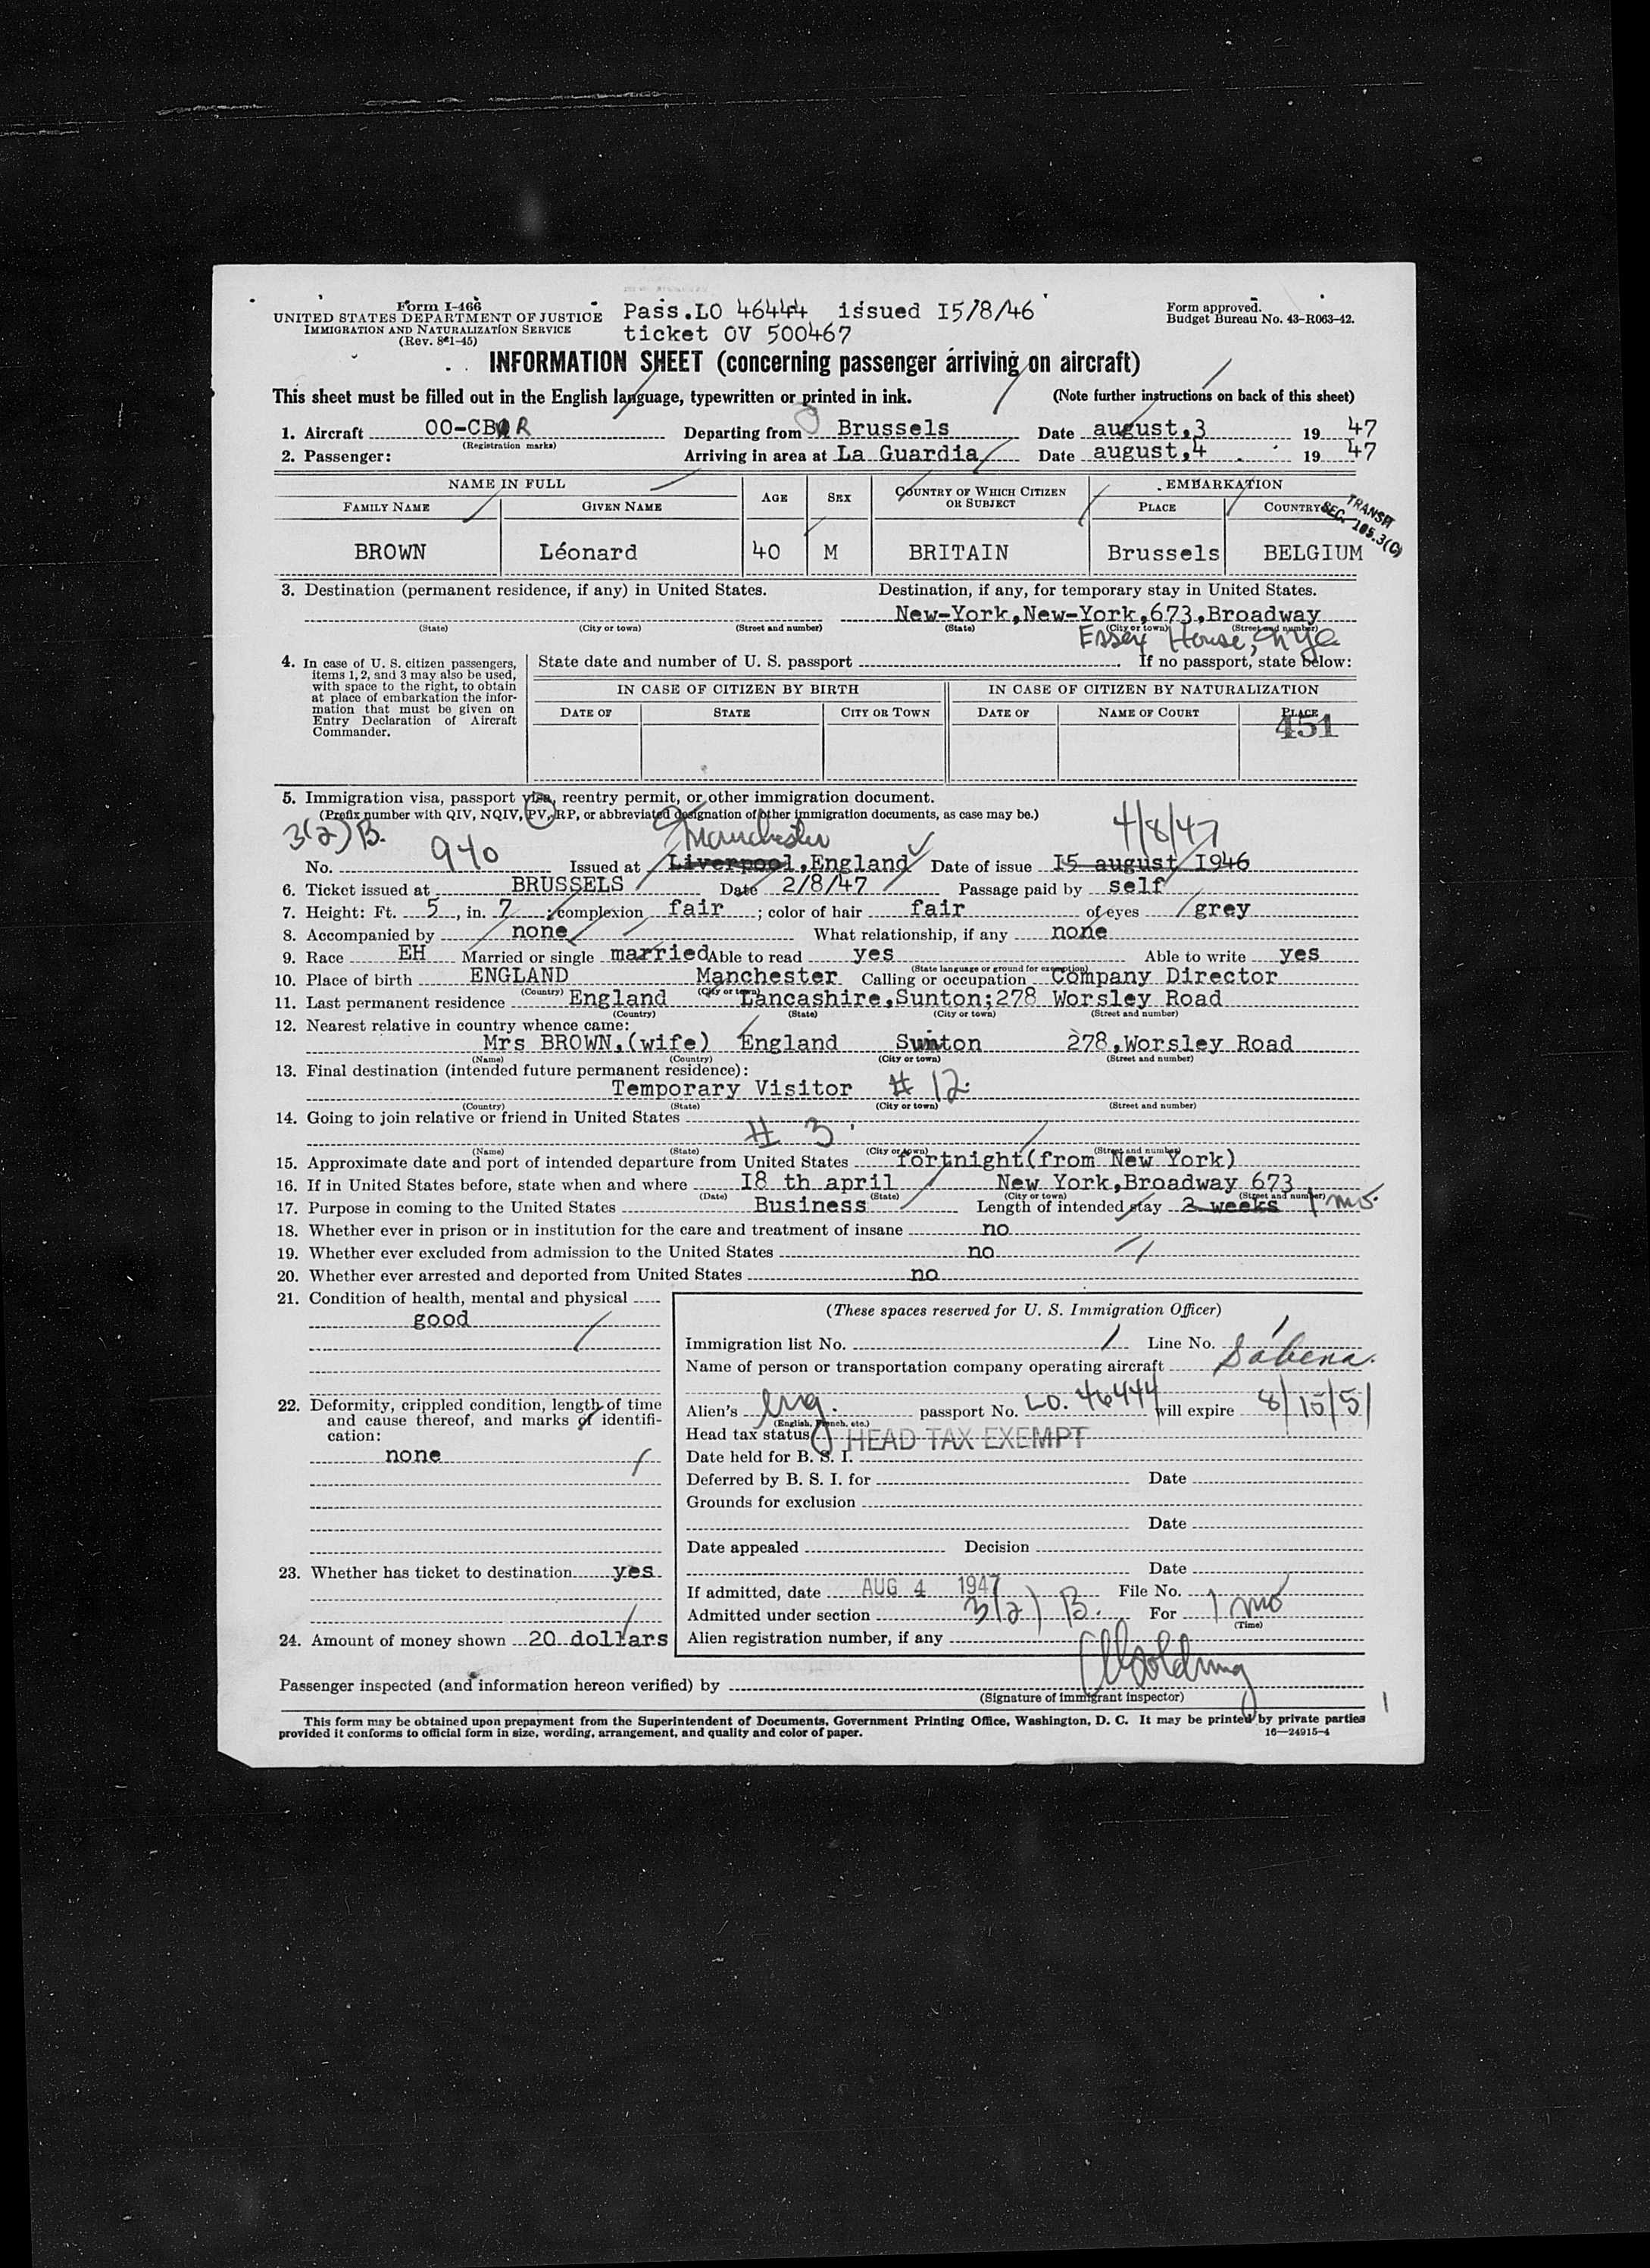 Form I-466
UNITED STATES DEPARTMENT OF JUSTICE
IMMIGRATION AND NATURALIZATION SERVICE
(Rev. 8-1-45)
Pass.LO 46444 issued I5/8/46
ticket OV 500467
Form approved.
Budget Bureau No. 43-R063-42.
INFORMATION SHEET (concerning passenger arriving on aircraft)
This sheet must be filled out in the English language, typewritten or printed in ink. (Note further instructions on back of this sheet)
1. Aircraft OO-CB R Departing from Brussels Date august,3 19 47
(Registration marks)
2. Passenger: Arriving in area at La Guardia Date august,4 19 47
NAME IN FULL AGE SEX COUNTRY OF WHICH CITIZEN OR SUBJECT EMBARKATION
FAMILY NAME GIVEN NAME PLACE COUNTRY
TRANSIT
SEC. 105.3(C)
BROWN Léonard 40 M BRITAIN Brussels BELGIUM
3. Destination (permanent residence, if any) in United States. Destination, if any, for temporary stay in United States.
New-York,New-York,673,Broadway
(State) (City or town) (Street and number) (State) (City or town) (Street and number)
Essex House, NYC
4. In case of U. S. citizen passengers, items 1, 2, and 3 may also be used, with space to the right, to obtain at place of embarkation the information that must be given on Entry Declaration of Aircraft Commander.
State date and number of U. S. passport . If no passport, state below:
IN CASE OF CITIZEN BY BIRTH IN CASE OF CITIZEN BY NATURALIZATION
DATE OF STATE CITY OR TOWN DATE OF NAME OF COURT PLACE
451
5. Immigration visa, passport visa, reentry permit, or other immigration document.
(Prefix number with QIV, NQIV, PV, RP, or abbreviated designation of other immigration documents, as case may be.)
3(2) B. Manchester 4/8/47
No. 940 Issued at Liverpool,England Date of issue I5 august I946
6. Ticket issued at BRUSSELS Date 2/8/47 Passage paid by self
7. Height: Ft. 5, in. 7 ; complexion fair ; color of hair fair of eyes grey
8. Accompanied by none What relationship, if any none
9. Race EH Married or single married Able to read yes Able to write yes
(State language or ground for exemption)
10. Place of birth ENGLAND Manchester Calling or occupation Company Director
(Country) (City or town)
11. Last permanent residence England Lancashire,Sunton;278 Worsley Road
(Country) (State) (City or town) (Street and number)
12. Nearest relative in country whence came:
Mrs BROWN,(wife) England Sunton 278,Worsley Road
(Name) (Country) (City or town) (Street and number)
13. Final destination (intended future permanent residence):
Temporary Visitor # 12.
(Country) (State) (City or town) (Street and number)
14. Going to join relative or friend in United States
# 3
(Name) (State) (City or town) (Street and number)
15. Approximate date and port of intended departure from United States fortnight(from New York)
16. If in United States before, state when and where I8 th april New York,Broadway 673
(Date) (State) (City or town) (Street and number)
17. Purpose in coming to the United States Business Length of intended stay 2 weeks 1 mo.
18. Whether ever in prison or in institution for the care and treatment of insane no
19. Whether ever excluded from admission to the United States no
20. Whether ever arrested and deported from United States no
21. Condition of health, mental and physical
good
22. Deformity, crippled condition, length of time and cause thereof, and marks of identification:
none
23. Whether has ticket to destination yes
24. Amount of money shown 20 dollars
(These spaces reserved for U. S. Immigration Officer)
Immigration list No. Line No.
Name of person or transportation company operating aircraft Sabena.
Alien's Eng. passport No. LO. 46444 will expire 8/15/51
(English, French, etc.)
Head tax status HEAD TAX EXEMPT
Date held for B. S. I.
Deferred by B. S. I. for Date
Grounds for exclusion
Date
Date appealed Decision
Date
If admitted, date AUG 4 1947 File No.
Admitted under section 3(2) B. For 1 mo
(Time)
Alien registration number, if any
Passenger inspected (and information hereon verified) by
(Signature of immigrant inspector)
This form may be obtained upon prepayment from the Superintendent of Documents, Government Printing Office, Washington, D. C. It may be printed by private parties
provided it conforms to official form in size, wording, arrangement, and quality and color of paper. 16—24915-4